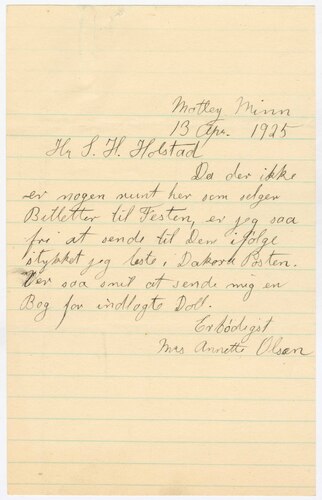 Motley Minn
13 Apr. 1925
Hr S. H. Holstad
Da der ikke
er nogen runt her som selger
Billetter til Festen, er jeg saa
fri at sende til Dem ifølge
stykket jeg leste i Dakota Posten.
Ver saa snil at sende mig en
Bog for indlagte Doll.
Erbødigst
Mrs Annette Olsen